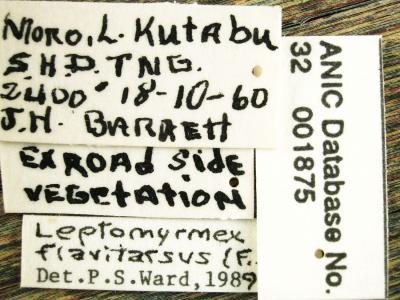 Moro, L. Kutabu
S.H.D. TNG.
2400' 18-10-60
J.H. BARRETT
EX ROAD SIDE
VEGETATION
Leptomyrmex
flavitarsus (F.
Det.P.S.Ward,1989
ANIC Database No.
32 001875